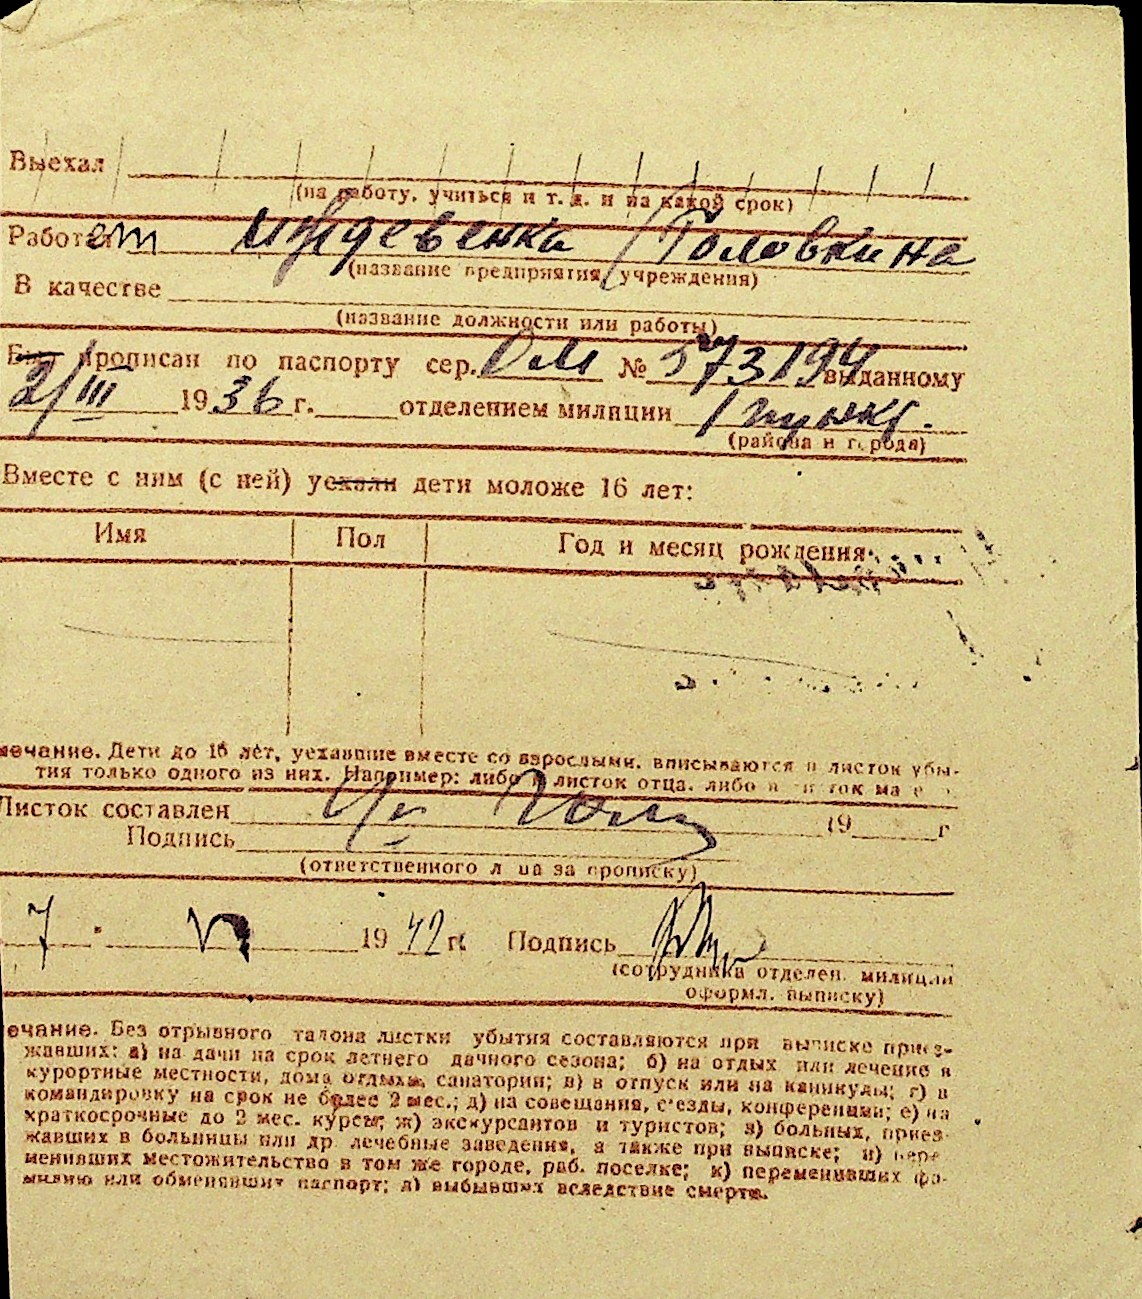 Выехал
(на работу, учиться и т. д. и на какой срок)
Работает иждевенка Головкина
(название предприятия, учреждения)
В качестве
(название должности или работы)
Был прописан по паспорту сер. ОМ № 573194 выданному
2/III 1936 г. отделением милиции 1 пункт.
(района и города)
Вместе с ним (с ней) уехали дети моложе 16 лет:
Имя Пол Год и месяц рождения
мечание. Дети до 16 лет, уехавшие вместе со взрослыми, вписываются в листок убы-
тия только одного из них. Например: либо в листок отца, либо в листок ма
Листок составлен 19 г
Подпись
(ответственного лица за прописку)
7 VI 1942 г. Подпись
(сотрудника отделен. милиции
оформл. выписку)
ечание. Без отрывного талона листки убытия составляются при выписке приез-
жавших: а) на дачи на срок летнего дачного сезона; б) на отдых или лечение в
курортные местности, дома отдыха, санатории; в) в отпуск или на каникулы; г) в
командировку на срок не более 2 мес.; д) на совещания, с'езды, конференции; е) на
краткосрочные до 2 мес. курсы; ж) экскурсантов и туристов; з) больных, приез-
жавших в больницы или др. лечебные заведения, а также при выписке; и) пере-
менивших местожительство в том же городе, раб. поселке; к) переменивших фа-
милию или обменявших паспорт; л) выбывших вследствие смерти.